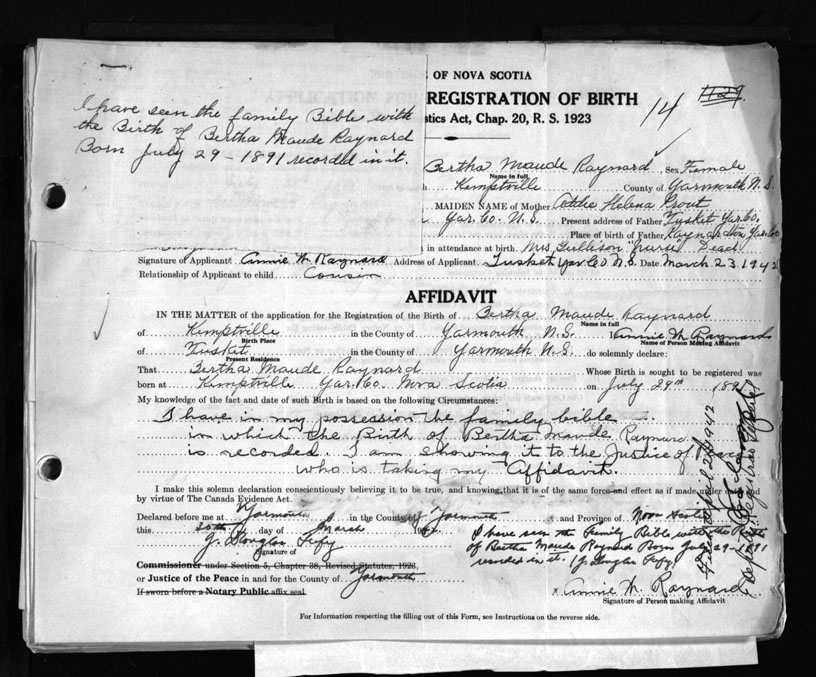 I have seen the family Bible with
the Birth of Bertha Maude Raynard
Born July 29 - 1891 recorded in it.
E OF NOVA SCOTIA
REGISTRATION OF BIRTH
14 1129
stics Act, Chap. 20, R. S. 1923
Bertha Maude Raynard, Sex Female
Name in full
h Kemptville County of Yarmouth N.S.
MAIDEN NAME of Mother Addie Helena Prout
Yar. Co. N.S. Present address of Father Tusket Yar Co.
Place of birth of Father Raynardton Yar Co
in attendance at birth Mrs Gullison "nurse" Dead
Signature of Applicant Annie M. Raynard Address of Applicant Tusket Yar Co N.S. Date March 23 1942
Relationship of Applicant to child Cousin
AFFIDAVIT
IN THE MATTER of the application for the Registration of the Birth of Bertha Maude Raynard
Name in full
of Kemptville in the County of Yarmouth N.S. Annie M Raynard
Birth Place Name of Person Making Affidavit
of Tusket in the County of Yarmouth N.S. do solemnly declare:
Present Residence
That Bertha Maude Raynard Whose Birth is sought to be registered was
born at Kemptville Yar. Co. Nova Scotia on July 29th 189
My knowledge of the fact and date of such Birth is based on the following Circumstances:
I have in my possession the family bible
in which the Birth of Bertha Maude Raynard
is recorded. I am showing it to the Justice of Peace
who is taking my Affidavit.
I make this solemn declaration conscientiously believing it to be true, and knowing that it is of the same force and effect as if made under oath and
by virtue of The Canada Evidence Act.
Declared before me at Yarmouth in the County of Yarmouth and Province of Nova Scotia
this day of March 194
J. Douglas
Signature of
I have seen the Family Bible with the Birth
of Bertha Maude Raynard Born July 29-1891
recorded in it. J Douglas
Commissioner under Section 5, Chapter 38, Revised Statutes, 1923,
or Justice of the Peace in and for the County of Yarmouth
If sworn before a Notary Public affix seal
x Annie M. Raynard
Signature of Person making Affidavit
For Information respecting the filling out of this Form, see Instructions on the reverse side.
1942
Deputy Registrar